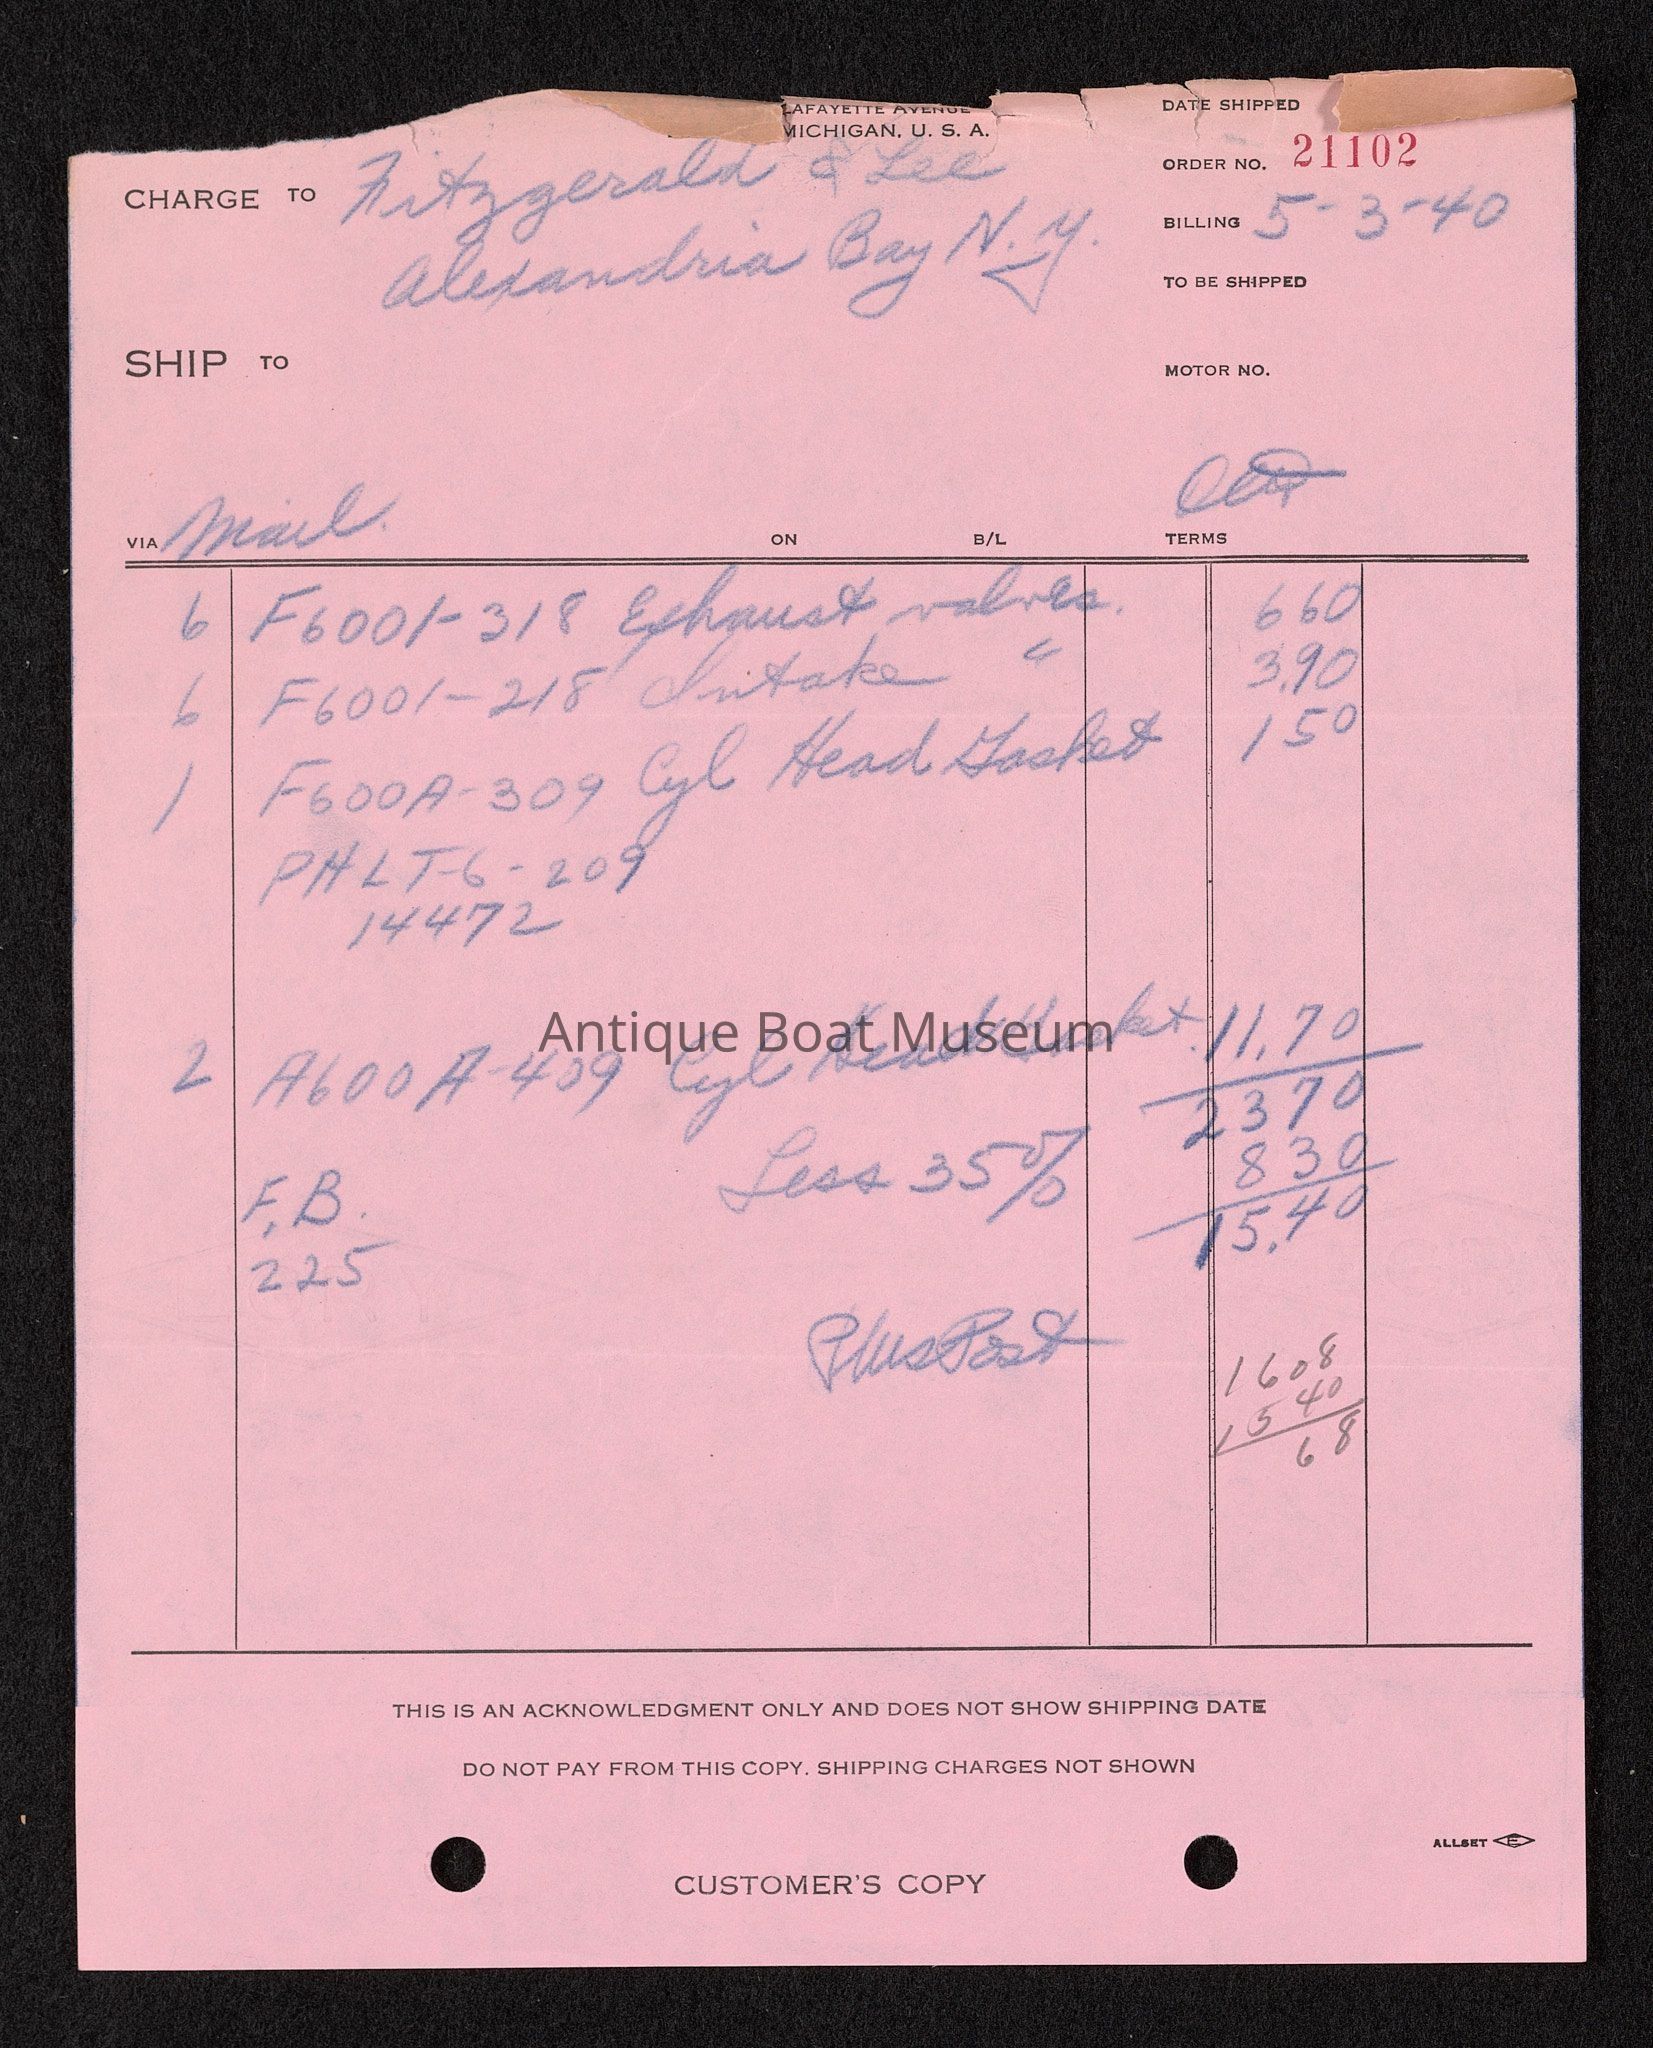 LAFAYETTE AVENUE
MICHIGAN, U. S. A.
DATE SHIPPED
ORDER NO. 21102
CHARGE TO Fitzgerald & Lee
Alexandria Bay N. Y.
BILLING 5-3-40
TO BE SHIPPED
SHIP TO
MOTOR NO.
VIA Mail.
ON
B/L
TERMS
6 F6001-318 Exhaust valves. 660
6 F6001-218 Intake " 3.90
1 F600A-309 Cyl Head Gasket 150
PHLT-6-209
14472
Antique Boat Museum
2 A600A-409 Cyl Head Gasket. 11.70
2370
Less 35% 830
15.40
F.B.
225
Plus Post
1608
1540
68
THIS IS AN ACKNOWLEDGMENT ONLY AND DOES NOT SHOW SHIPPING DATE
DO NOT PAY FROM THIS COPY. SHIPPING CHARGES NOT SHOWN
ALLSET E
CUSTOMER'S COPY